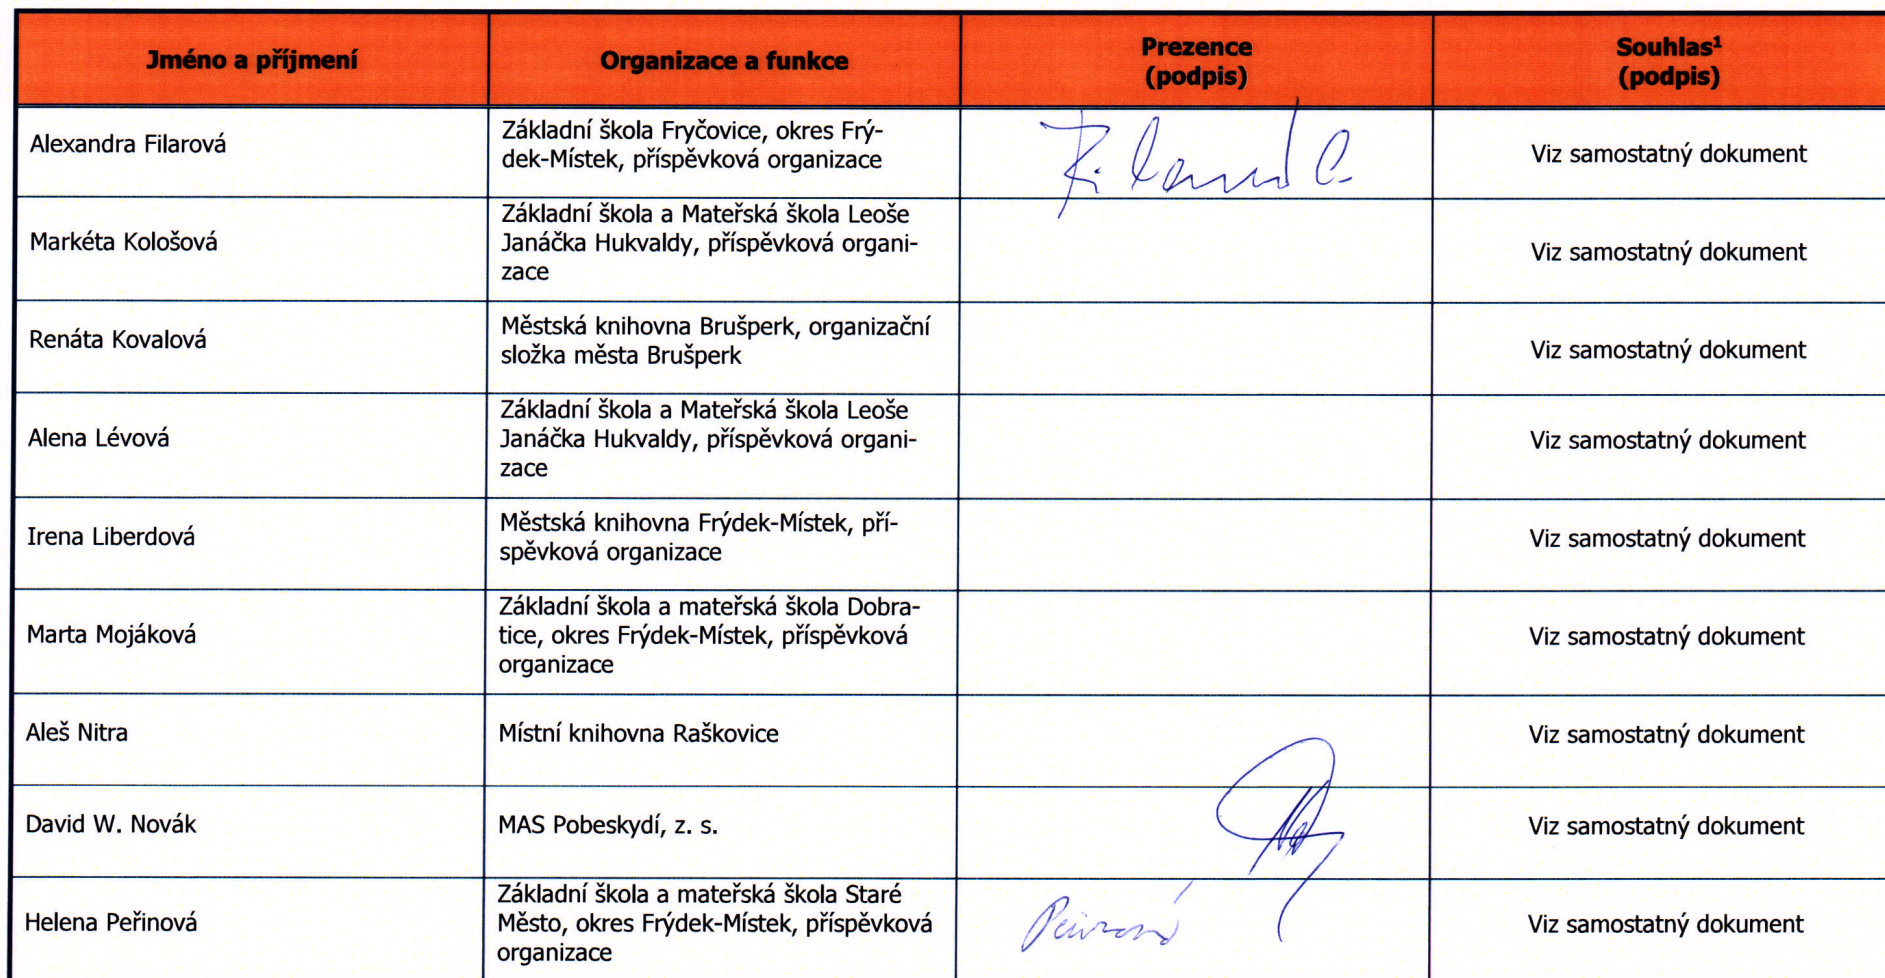 Jméno a příjmení
Organizace a funkce
Prezence
(podpis)
Souhlas¹
(podpis)
Alexandra Filarová
Základní škola Fryčovice, okres Frý-
dek-Místek, příspěvková organizace
Viz samostatný dokument
Markéta Kološová
Základní škola a Mateřská škola Leoše
Janáčka Hukvaldy, příspěvková organi-
zace
Viz samostatný dokument
Renáta Kovalová
Městská knihovna Brušperk, organizační
složka města Brušperk
Viz samostatný dokument
Alena Lévová
Základní škola a Mateřská škola Leoše
Janáčka Hukvaldy, příspěvková organi-
zace
Viz samostatný dokument
Irena Liberdová
Městská knihovna Frýdek-Místek, pří-
spěvková organizace
Viz samostatný dokument
Marta Mojáková
Základní škola a mateřská škola Dobra-
tice, okres Frýdek-Místek, příspěvková
organizace
Viz samostatný dokument
Aleš Nitra
Místní knihovna Raškovice
Viz samostatný dokument
David W. Novák
MAS Pobeskydí, z. s.
Viz samostatný dokument
Helena Peřinová
Základní škola a mateřská škola Staré
Město, okres Frýdek-Místek, příspěvková
organizace
Viz samostatný dokument